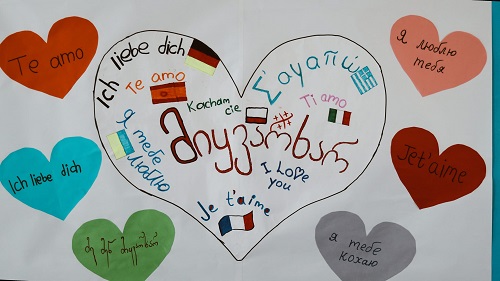 Te amo
Ich liebe dich
მე შენ მიყვარხარ
Ich liebe dich
Te amo
Kacham
cie
Σαγαπώ
Ti amo
მიყვარხარ
Я тебе
люблю
I Love
you
Je t'aime
Я люблю
тебя
Je t'aime
Я тебе
кохаю